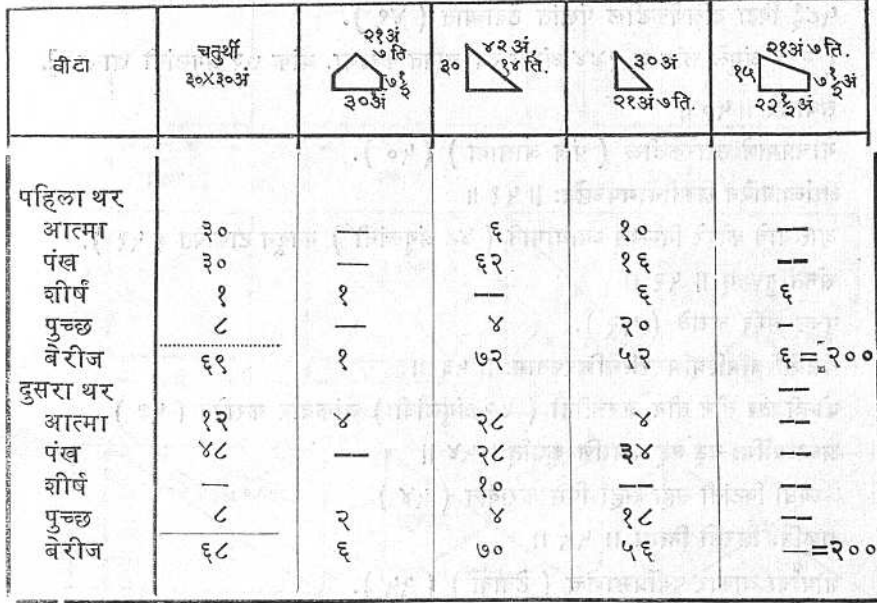 वीटा चतुर्थी ३०X३०अं २१अं ७ ति ७१/२ ३०अं ३० ४२ अं, १४ ति. ३०अं २१अं ७ ति. २१अं ७ ति. १५ ७१/२अं २२१/२अं
पहिला थर
आत्मा ३० — ६ १० —
पंख ३० — ६२ १६ —
शीर्ष १ १ — ६ ६
पुच्छ ८ — ४ २० —
बेरीज ६९ १ ७२ ५२ ६ = २००
दुसरा थर —
आत्मा १२ ४ २८ ४ —
पंख ४८ — २८ ३४ —
शीर्ष — १० — —
पुच्छ ८ २ ४ १८ —
बेरीज ६८ ६ ७० ५६ —=२००